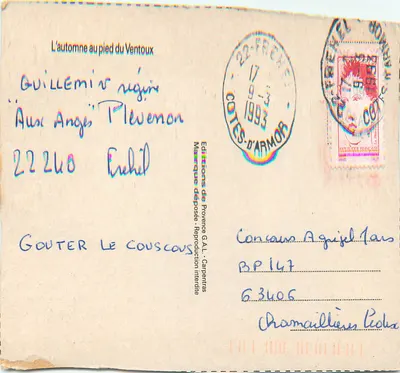 L'automne au pied du Ventoux
GUILLEMIN régine
"Aux Anges" Plévenon
22240 Fréhel
GOUTER LE COUSCOUS
Editions de Provence G.A.L. - Carpentras
Marque déposée - Reproduction interdite
22-FREHEL
17 H
9-3
1993
COTES-D'ARMOR
Concours Agrigel Mars
BP 147
63406
Chamaillières Cédex